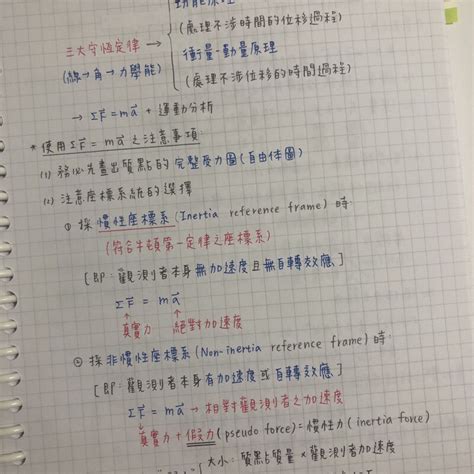 動能原理
(處理不涉時間的位移過程)
三大守恆定律 →
衝量-動量原理
(線→角→力學能)
(處理不涉位移的時間過程)
→ ΣF⃗ = ma⃗ + 運動分析
* 使用ΣF⃗ = ma⃗ 之注意事項
(1) 務必先畫出質點的完整受力圖(自由体圖)
(2) 注意座標系統的選擇
① 採慣性座標系(Inertia reference frame) 時:
(符合牛頓第一定律之座標系)
[即: 觀測者本身無加速度且無自轉效應]
ΣF⃗ = ma⃗
真實力 絕對加速度
② 採非慣性座標系(Non-inertia reference frame) 時:
[即: 觀測者本身有加速度或自轉效應]
ΣF⃗ = ma⃗ → 相對觀測者之加速度
真實力 + 假力(pseudo force) = 慣性力(inertia force)
大小: 質點質量 × 觀測者加速度